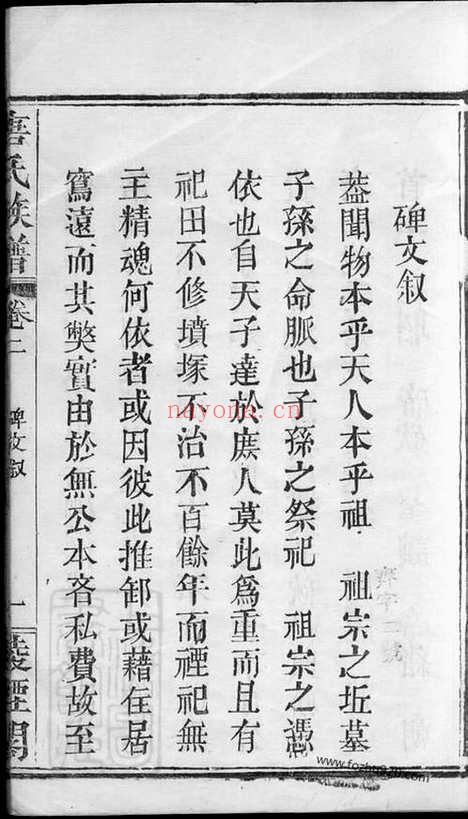 碑文叙
葢聞物本乎天人本乎祖　祖宗之坵墓
子孫之命脈也子孫之祭祀　祖宗之憑
依也自天子達於庶人莫此爲重而且有
祀田不修墳塚不治不百餘年而禋祀無
主精魂何依者或因彼此推卸或藉住居
寫遠而其獘實由於無公本吝私費故至
氏族譜
卷二
碑文叙
一
nayona.cn
www.fozhu920.com